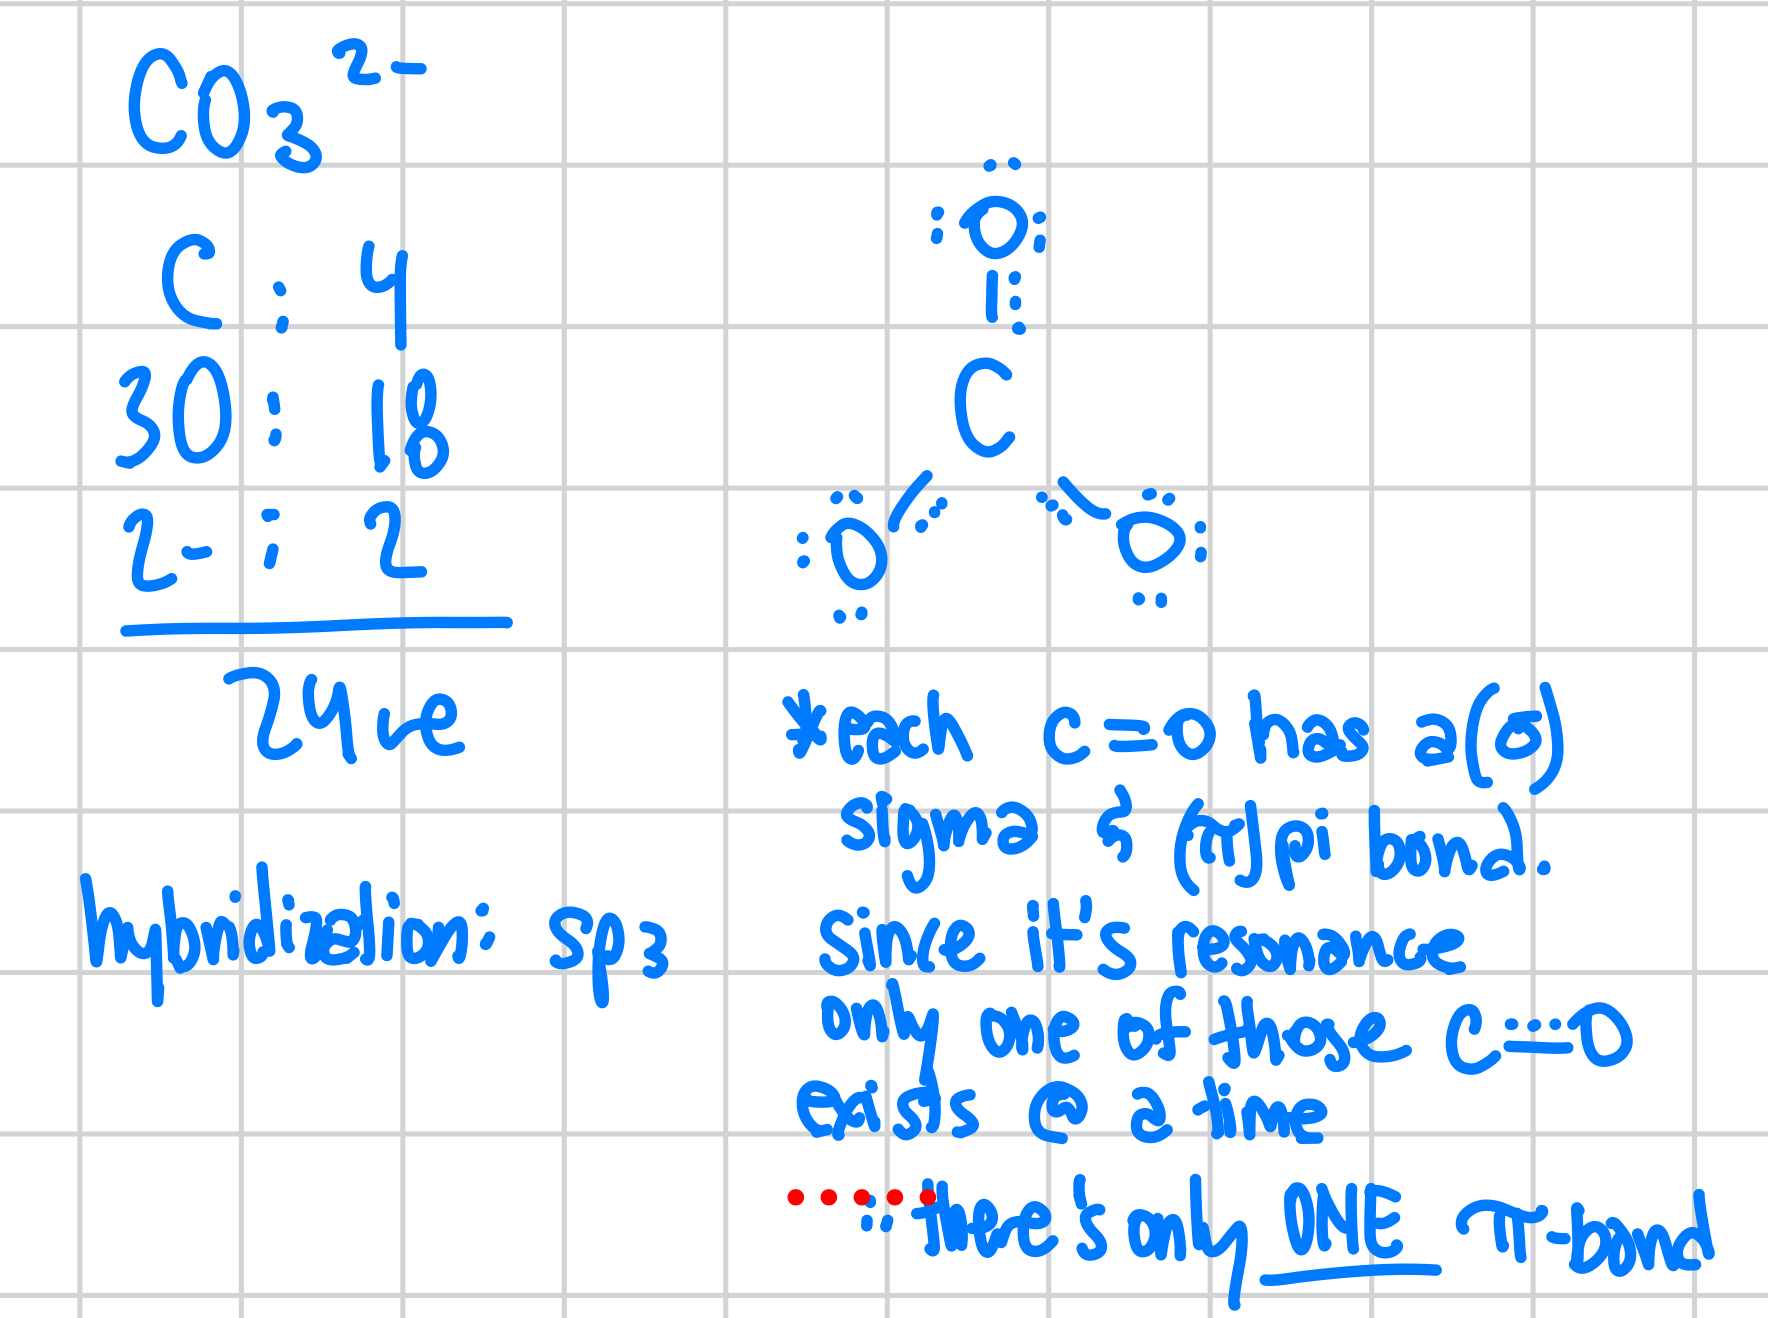 CO₃²⁻
C : 4
3O : 18
2- : 2
24 ve
hybridization: sp3
O
C
O O
*each C=O has a (σ)
sigma & (π) pi bond.
since it's resonance
only one of those C=O
exists @ a time
∴ there's only ONE π-bond